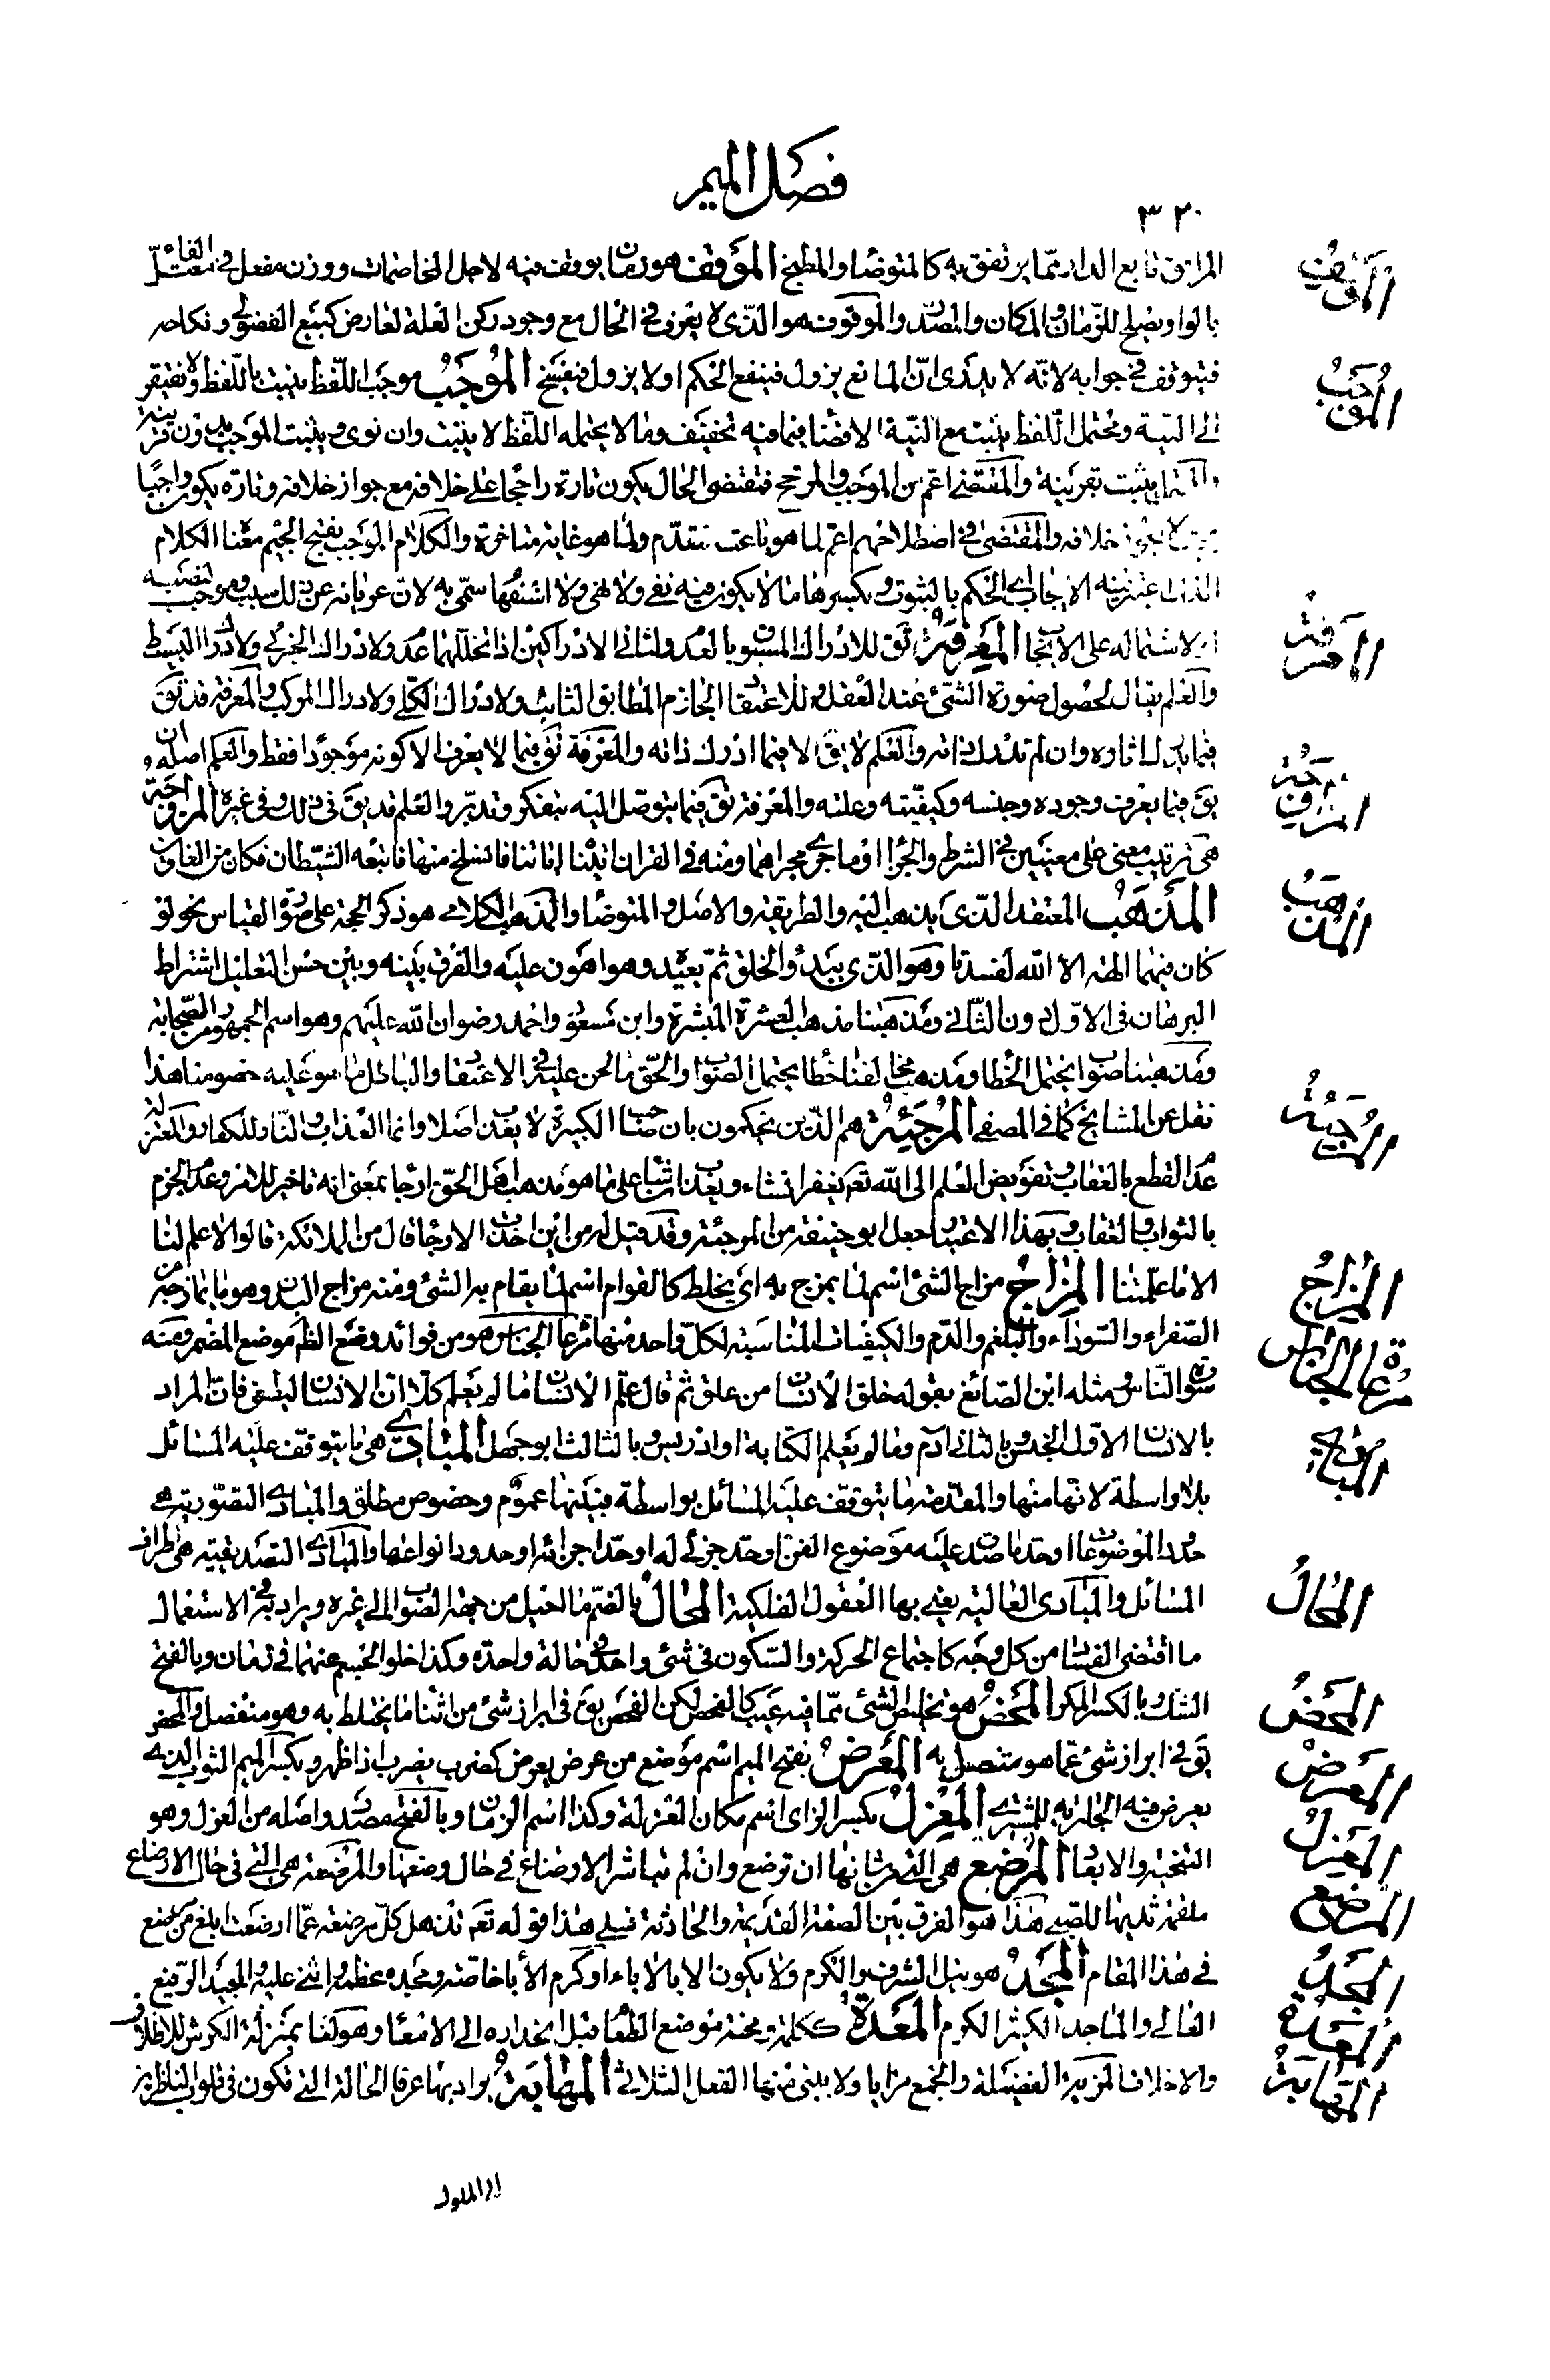 فصل الميم
٣٢٠
المرافق توابع الدار مما يرتفق به كالمتوضأ والمطبخ الموقف هو مكان يوقف فيه لاجل المخاصمات ووزن مفعل في معتل الفاء
بالواو يصلح للزمان والمكان والمصدر والموقوف هو الذي لا يعرف في الحال مع وجود ركن العلة لعارض كبيع الفضولي ونكاحه
فيتوقف في جوابه لانه لا يدرى ان المانع يزول فينفع الحكم او لا يزول فينفسخ الموجب موجب اللفظ يثبت باللفظ ولا يفتقر
الى النية ومحتمل اللفظ يثبت مع النية الا قضاء فيما فيه تخفيف وما لا يحتمله اللفظ لا يثبت وان نوى ويثبت الموجب بدون قرينة
يثبت بقرينة والمقتضى اعم من الموجب والمرجح فمقتضى الحال يكون تارة راجحا على خلافه مع جواز خلافه وتارة يكون واجبا
لا يجوز خلافه والمقتضى في اصطلاحهم اعم لما هو باعث متقدم ولما هو غاية متاخرة والكلام الموجب بفتح الجيم معناه الكلام
الذي اعتبر فيه الايجاب اي الحكم بالثبوت وبكسرها ما لا يكون فيه نفي ولا نهي ولا استفهام سمي به لان عريانه عن ذلك سبب وموجب لنصبه
لاشتماله على الايجاب المعرفة تق للادراك المسبوق بالعدم ولثاني الادراكين اذا تخللهما عدم ولادراك الجزئي ولادراك البسيط
والعلم يقال لحصول صورة الشئ عند العقل وللاعتقاد الجازم المطابق الثابت ولادراك الكلي ولادراك المركب والمعرفة قد تق
فيما يدرك اثاره وان لم تدرك ذاته والعلم لا يق الا فيما ادرك ذاته والمعرفة تق فيما لا يعرف الا كونه موجودا فقط والعلم اصله ان
يق فيما يعرف وجوده وجنسه وكيفيته وعلته والمعرفة تق فيما يتوصل اليه بتفكر وتدبر والعلم قد يق في ذلك وفي غيره المزاوجة
هي ترتيب معنى على معنيين في الشرط والجزاء او ما جرى مجراهما ومنه في القران اتيناه اياتنا فانسلخ منها فاتبعه الشيطان فكان من الغاوين
المذهب المعتقد الذي يذهب اليه والطريقة والاصل والمتوضأ والمذهب الكلامي هو ذكر الحجة على صورة القياس نحو لو
كان فيهما الهة الا الله لفسدتا وهو الذي يبدؤ الخلق ثم يعيده وهو اهون عليه والفرق بينه وبين حسن التعليل اشتراط
البرهان في الاول دون الثاني ومذهبنا مذهب العشرة المبشرة وابن مسعود واحمد رضوان الله عليهم وهو اسم الجمهور من الصحابة
ومذهبنا صواب يحتمل الخطا ومذهب مخالفنا خطا يحتمل الصواب والحق ما نحن عليه في الاعتقاد والباطل ما هو عليه خصومنا هذا
نقل عن المشايخ كما في المصفى المرجئة هم الذين يحكمون بان صاحب الكبيرة لا يعذب اصلا وانما العذاب والنار للكفار والمعتزلة
عدم القطع بالعقاب وتفويض العلم الى الله تعالى يغفر ان شاء ويعذب ان شاء على ما هو مذهب اهل الحق ارجاء بمعنى انه تاخير للامر وعدم الجزم
بالثواب والعقاب وبهذا الاعتبار جعل ابو حنيفة من المرجئة وقد قيل له من اين اخذت الارجاء قال من الملائكة قالوا لا علم لنا
الا ما علمتنا المزاج مزاج الشئ اسم لما يمزج به اي يخلط كالقوام اسم لما يقام به الشئ ومنه مزاج البدن وهو ما يمازجه من
الصفراء والسوداء والبلغم والدم والكيفيات المناسبة لكل واحد منها مراعاة الجناس هو من فوائد وضع الظاهر موضع المضمر ومنه
سورة الناس ومثله ابن الصائغ بقوله خلق الانسان من علق ثم قال علم الانسان ما لم يعلم كلا ان الانسان ليطغى فان المراد
بالانسان الاول الجنس وبالثاني ادم ومن لم يعلم الكتابة او ادريس وبالثالث ابو جهل المبادي هي ما يتوقف عليه المسائل
بلا واسطة لانها منها والمقدمة ما يتوقف عليه المسائل بواسطة فبينهما عموم وخصوص مطلق والمبادي التصورية هي
حدود الموضوعات او حد ما صدق عليه موضوع الفن او حد جزئي له او حد اجزائه او حدود انواعها والمبادي التصديقية هي اطراف
المسائل والمبادي العالية يعني بها العقول الفلكية المحال بالضم ما احيل من جهة الصواب الى غيره ويراد به في الاستعمال
ما اقتضى الفساد من كل وجه كاجتماع الحركة والسكون في شئ واحد في حالة واحدة وكذا خلو الجسم عنهما في زمان وبالفتح
الشك وبالكسر المكر المحص هو تخليص الشئ مما فيه عيب كالفحص لكن الفحص يق في ابراز شئ من اثناء ما يختلط به وهو منفصل والمحص
يق في ابراز شئ عما هو متصل به المعرض بفتح الميم اسم موضع من عرض يعرض كضرب يضرب اذا ظهر وبكسر الميم الثوب الذي
يعرض فيه الجارية للمشتري المعزل بكسر الزاى اسم مكان العزلة وكذا اسم الزمان وبالفتح مصدر واصله من العزل وهو
التنحية والابعاد المرضع هي التي من شانها ان ترضع وان لم تباشر الارضاع في حال وضعها والمرضعة هي التي في حال الارضاع
ملقمة ثديها للصبي هذا هو الفرق بين الصفة القديمة والحادثة فعلى هذا قوله تع تذهل كل مرضعة عما ارضعت ابلغ من مرضع
في هذا المقام المجد هو نيل الشرف والكرم ولا يكون الا بالاباء او كرم الاباء خاصة ومجده عظمه واثنى عليه والمجيد الرفيع
العالي والماجد الكثير الكرم المعدة ككلمة ومحنة موضع الطعام قبل انحداره الى الامعاء وهو لنا بمنزلة الكرش للاظلاف
والاخفاف المزية الفضيلة والجمع مزايا ولا يبنى منها الفعل الثلاثي المهابة يراد بها عرفا الحالة التي تكون في قلوب الناظرين
الى الملوك
الموقف
الموجب
المعرفة
المزاوجة
المذهب
المرجئة
المزاج
مراعاة الجناس
المبادي
المحال
المحص
المعرض
المعزل
المرضع
المجد
المعدة
المهابة